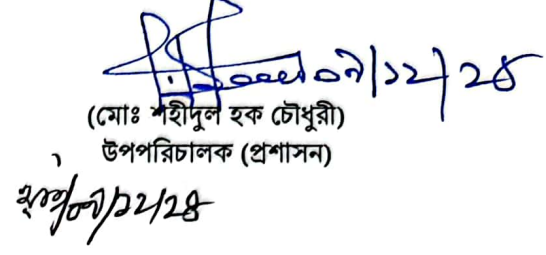 ০৯/১২/২৪
(মোঃ শহীদুল হক চৌধুরী)
উপপরিচালক (প্রশাসন)
০৯/১২/২৪